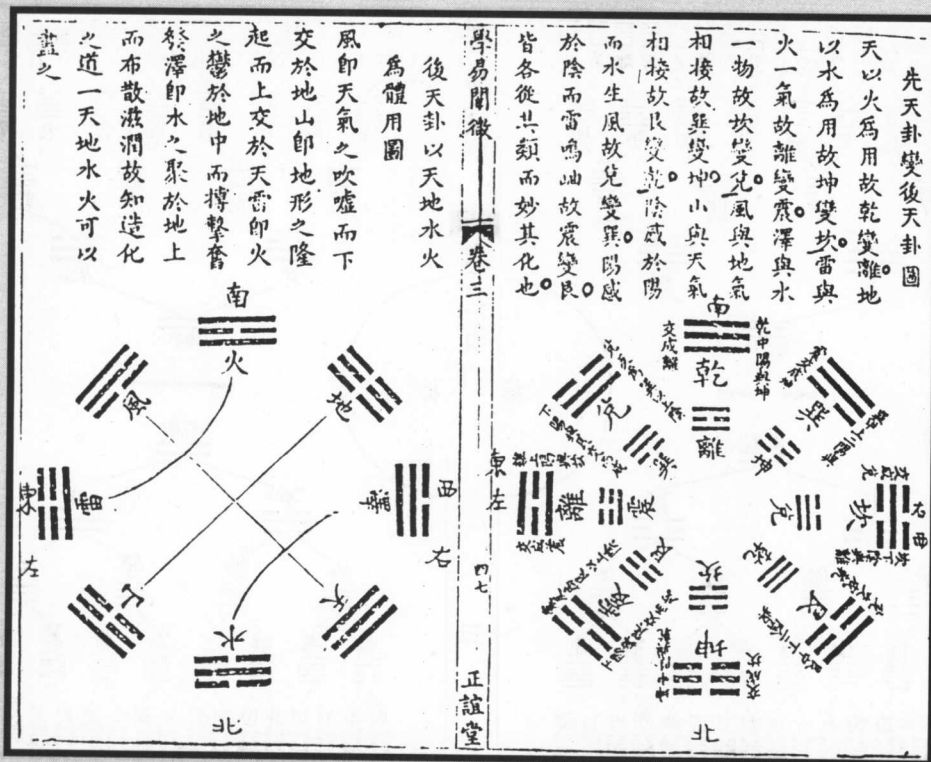 先天卦變後天卦圖
天以火為用故乾變離地
以水為用故坤變坎雷與
火一氣故離變震澤與水
一物故坎變兌風與地氣
相接故巽變坤山與天氣
相接故艮變乾陰感於陽
而水生風故兌變巽陽感
於陰而雷鳴岫故震變艮
皆各從其類而妙其化也
南
乾中陽與坤
交成離
乾
離
兌
巽
巽
坤
東
左
離上陽與坎
交成震
離
震
西
右
坎
兌
坎下陰與
離
交成兌
震
艮
艮
乾
坎
坤
交成坎
北
學易闡微
卷三
四七
正誼堂
後天卦以天地水火
為體用圖
風即天氣之吹噓而下
交於地山即地形之隆
起而上交於天雷即火
之鬱於地中而搏擊奮
發澤即水之聚於地上
而布散滋潤故知造化
之道一天地水火可以
盡之
南
火
風
地
東
左
雷
西
右
澤
山
天
水
北